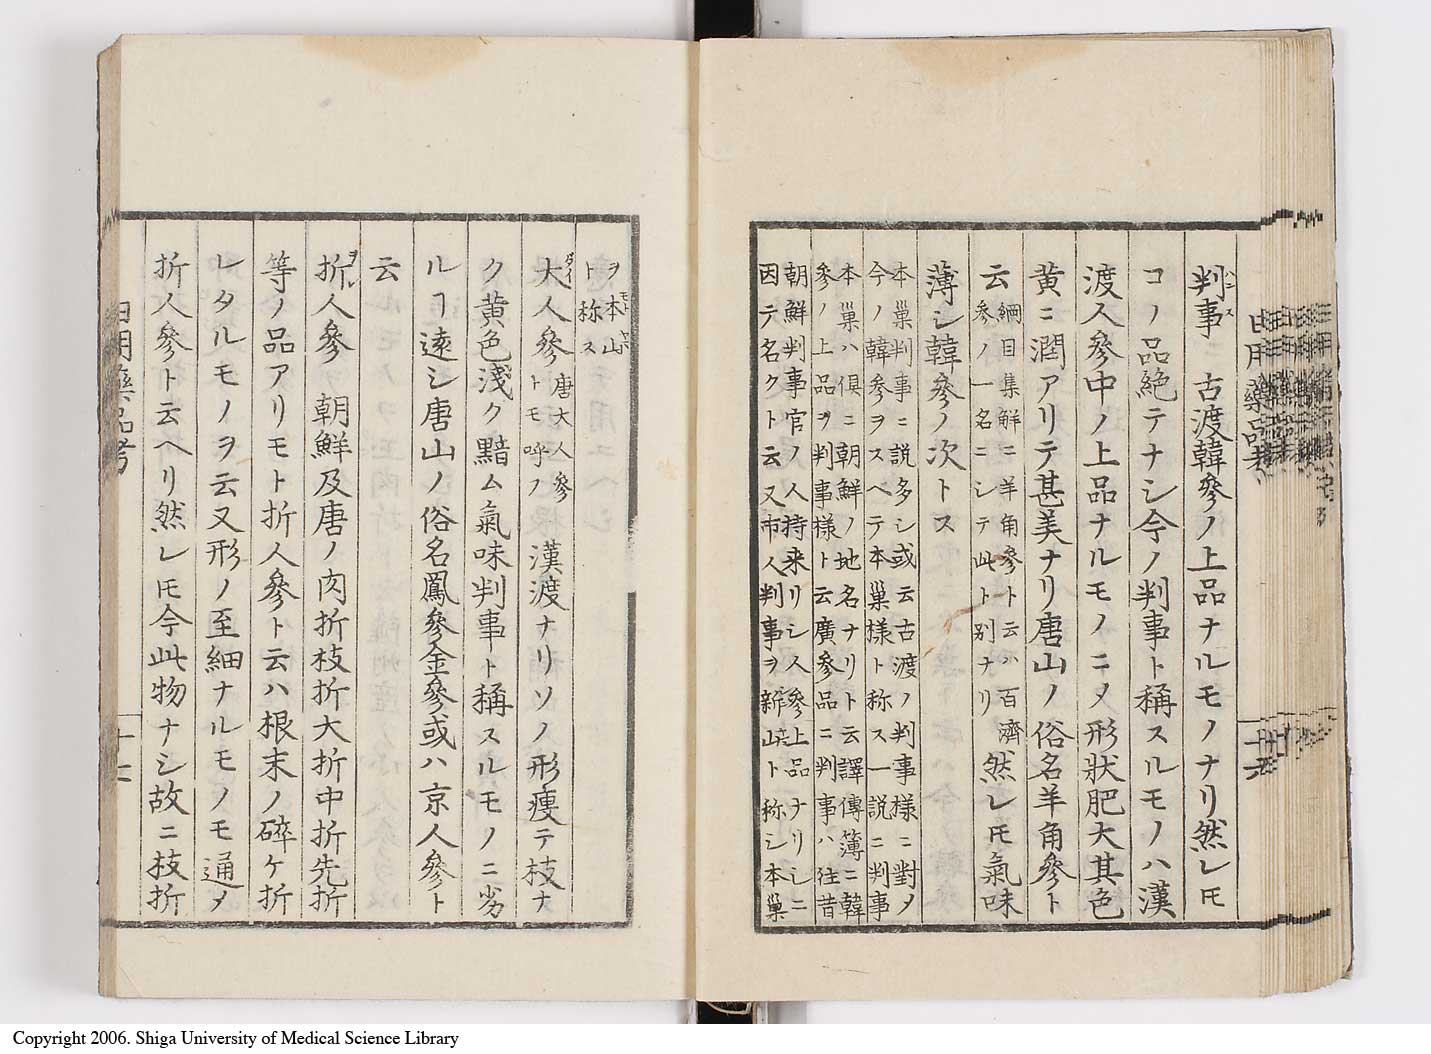 判事ハンス 古渡韓參ノ上品ナルモノナリ然レ𪜈
コノ品絶テナシ今ノ判事ト稱スルモノハ漢
渡人參中ノ上品ナルモノニメ形狀肥大其色
黄ニ潤アリテ甚美ナリ唐山ノ俗名羊角參ト
云 綱目集解ニ羊角參ト云ハ百濟
參ノ一名ニシテ此ト別ナリ 然レ𪜈氣味
薄シ韓參ノ次トス
本巢判事ニ説多シ或云古渡ノ判事様ニ對メ
今ノ韓參ヲスヘテ本巢様ト称ス一説ニ判事
本巢ハ倶ニ朝鮮ノ地名ナリト云譯傳簿ニ韓
參ノ上品ヲ判事様ト云廣參品ニ判事ハ往昔
朝鮮判事官ノ人持来リシ人參上品ナリシニ
因テ名クト云又市人判事ヲ新山ト称シ本巢
ヲ本山モトヤマ
ト称ス
大ダイ人參 唐大人參
トモ呼ノ 漢渡ナリソノ形痩テ枝ナ
ク黄色淺ク黯ム氣味判事ト稱スルモノニ劣
ルヿ遠シ唐山ノ俗名鳳參金參或ハ京人參ト
云
折ヲレ人參 朝鮮及唐ノ肉折枝折大折中折先折
等ノ品アリモト折人參ト云ハ根末ノ碎ケ折
レタルモノヲ云又形ノ至細ナルモノモ通メ
折人參ト云ヘリ然レ𪜈今此物ナシ故ニ枝折
日用藥品考
十六
日用藥品考
十七
Copyright 2006. Shiga University of Medical Science Library